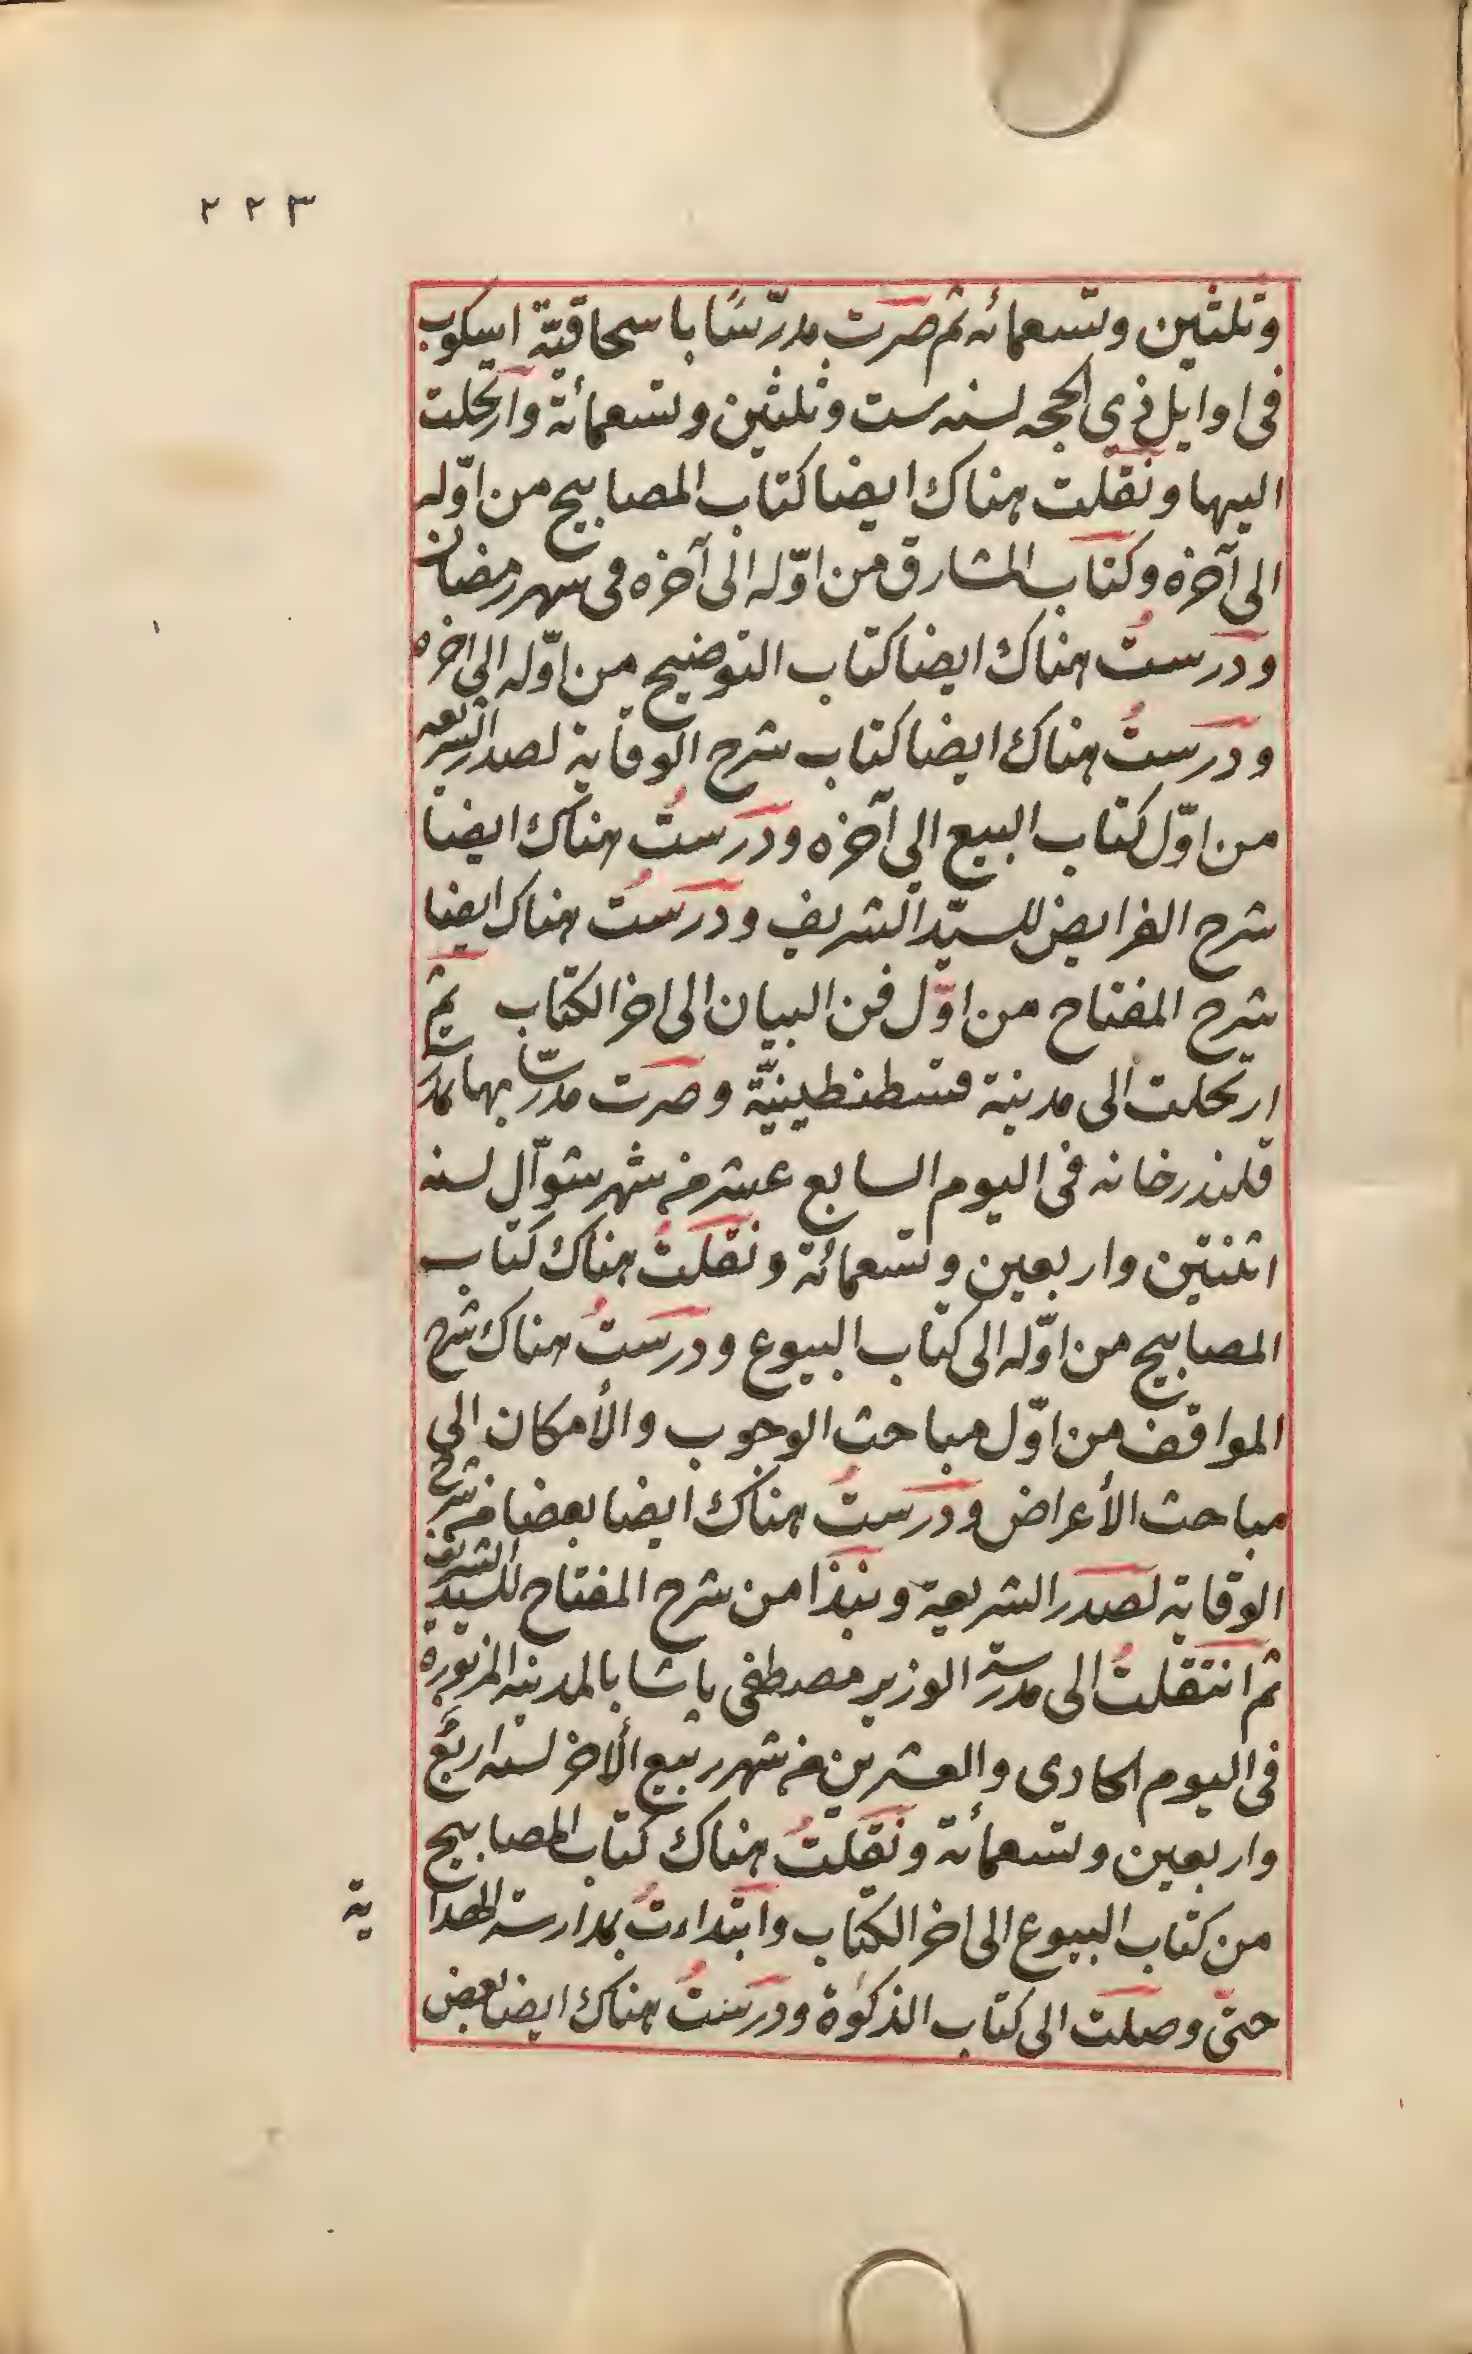 ٢٢٣
وثلثين وتسعمائه ثم صرت مدرّسًا باسحاقيّة اسكوب
فى اوايل ذى الحجه لسنه ست وثلثين وتسعمائة وارتحلت
اليها ونقلت هناك ايضا كتاب المصابيح من اوّله
الى آخره وكتاب المشارق من اوّله الى آخره فى شهر رمضان
ودرستُ هناك ايضا كتاب التوضيح من اوّله الى اخره
ودرستُ هناك ايضا كتاب شرح الوقاية لصدر الشريعه
من اوّل كتاب البيع الى آخره ودرستُ هناك ايضا
شرح الفرايض للسيّد الشريف ودرستُ هناك ايضا
شرح المفتاح من اوّل فن البيان الى اخر الكتاب ثم
ارتحلت الى مدينة قسطنطينيّة وصرت مدرّسا بها بمدرسة
قلندرخانه فى اليوم السابع عشر من شهر شوّال لسنه
اثنتين واربعين وتسعمائة ونقلتُ هناك كتاب
المصابيح من اوّله الى كتاب البيوع ودرستُ هناك شرح
المواقف من اوّل مباحث الوجوب والأمكان الى
مباحث الأعراض ودرستُ هناك ايضا بعضا من شرح
الوقاية لصدر الشريعة ونبذا من شرح المفتاح للسيّد الشريف
ثم انتقلتُ الى مدرسة الوزير مصطفى باشا بالمدينه المزبورة
فى اليوم الحادى والعشرين من شهر ربيع الأخر لسنه اربع
واربعين وتسعمائة ونقلتُ هناك كتاب المصابيح
من كتاب البيوع الى اخر الكتاب وابتداءتُ بمدارسة الهدا
ية
حتى وصلت الى كتاب الذكوة ودرستُ هناك ايضا بعض